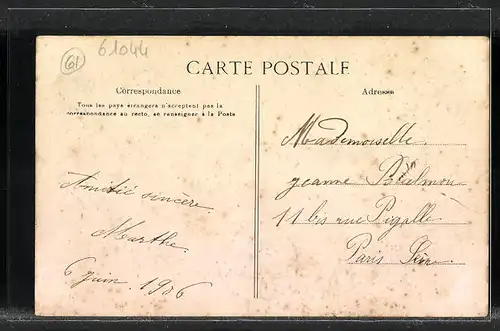 61 61044
CARTE POSTALE
Correspondance
Tous les pays étrangers n'acceptent pas la
correspondance au recto, se renseigner à la Poste
Adresse
Amitié sincère
Marthe
6 juin 1906
Mademoiselle
Jeanne
11 bis rue Pigalle
Paris Seine